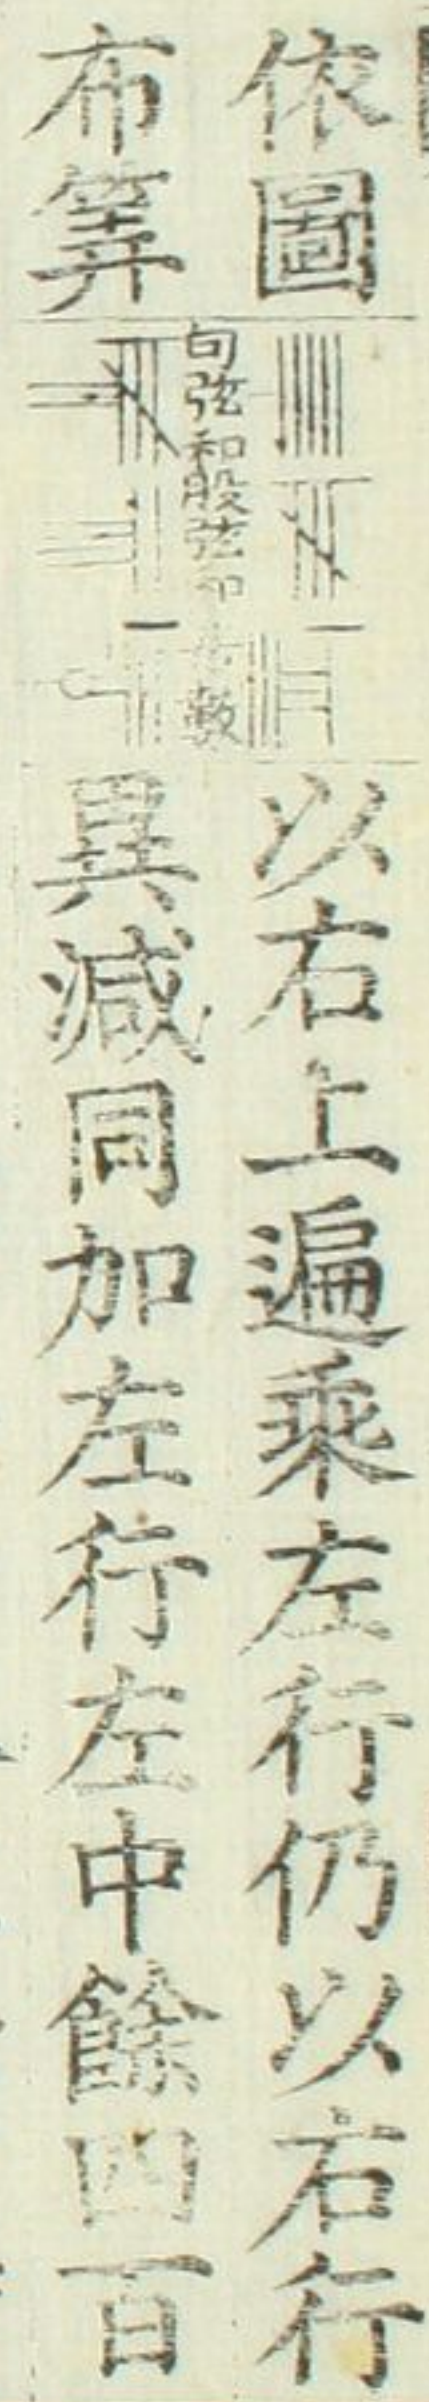 依圖
布筭
句弦和股弦
以右上遍乘左行仍以右行
異減同加左行左中餘四百